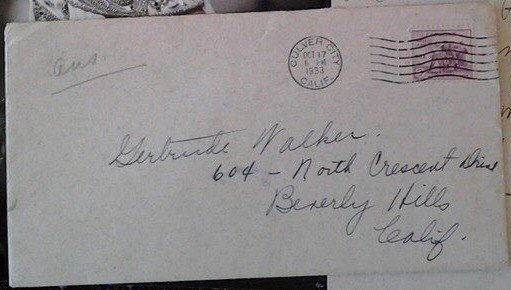 Ans.
CULVER CITY
OCT 17
6 PM
1933
CALIF.
Gertrude Walker.
604 - North Crescent Drive
Beverly Hills
Calif.